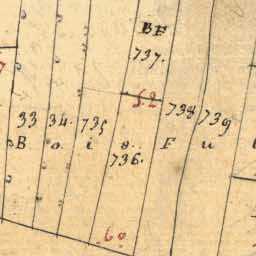 BF
737.
62
33 34. 735 738 739
B o i s F u
736.
60